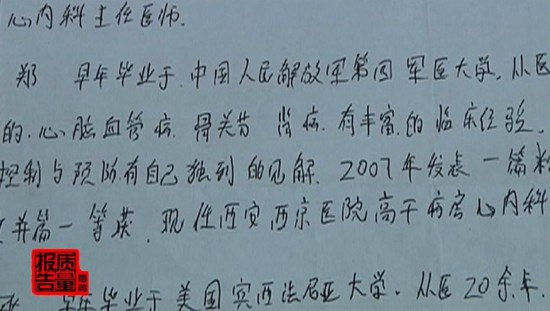 心内科主任医师.
郑 早年毕业于.中国人民解放军第四军医大学.从医
的.心脑血管病.骨关节 肾病.有丰富.的临床经验.
控制与预防有自己独到的见解.2007年发表一篇
一等奖.现任西安西京医院高干病房心内科
早年毕业于美国宾西法尼亚大学.从医20余年.
质量
报告